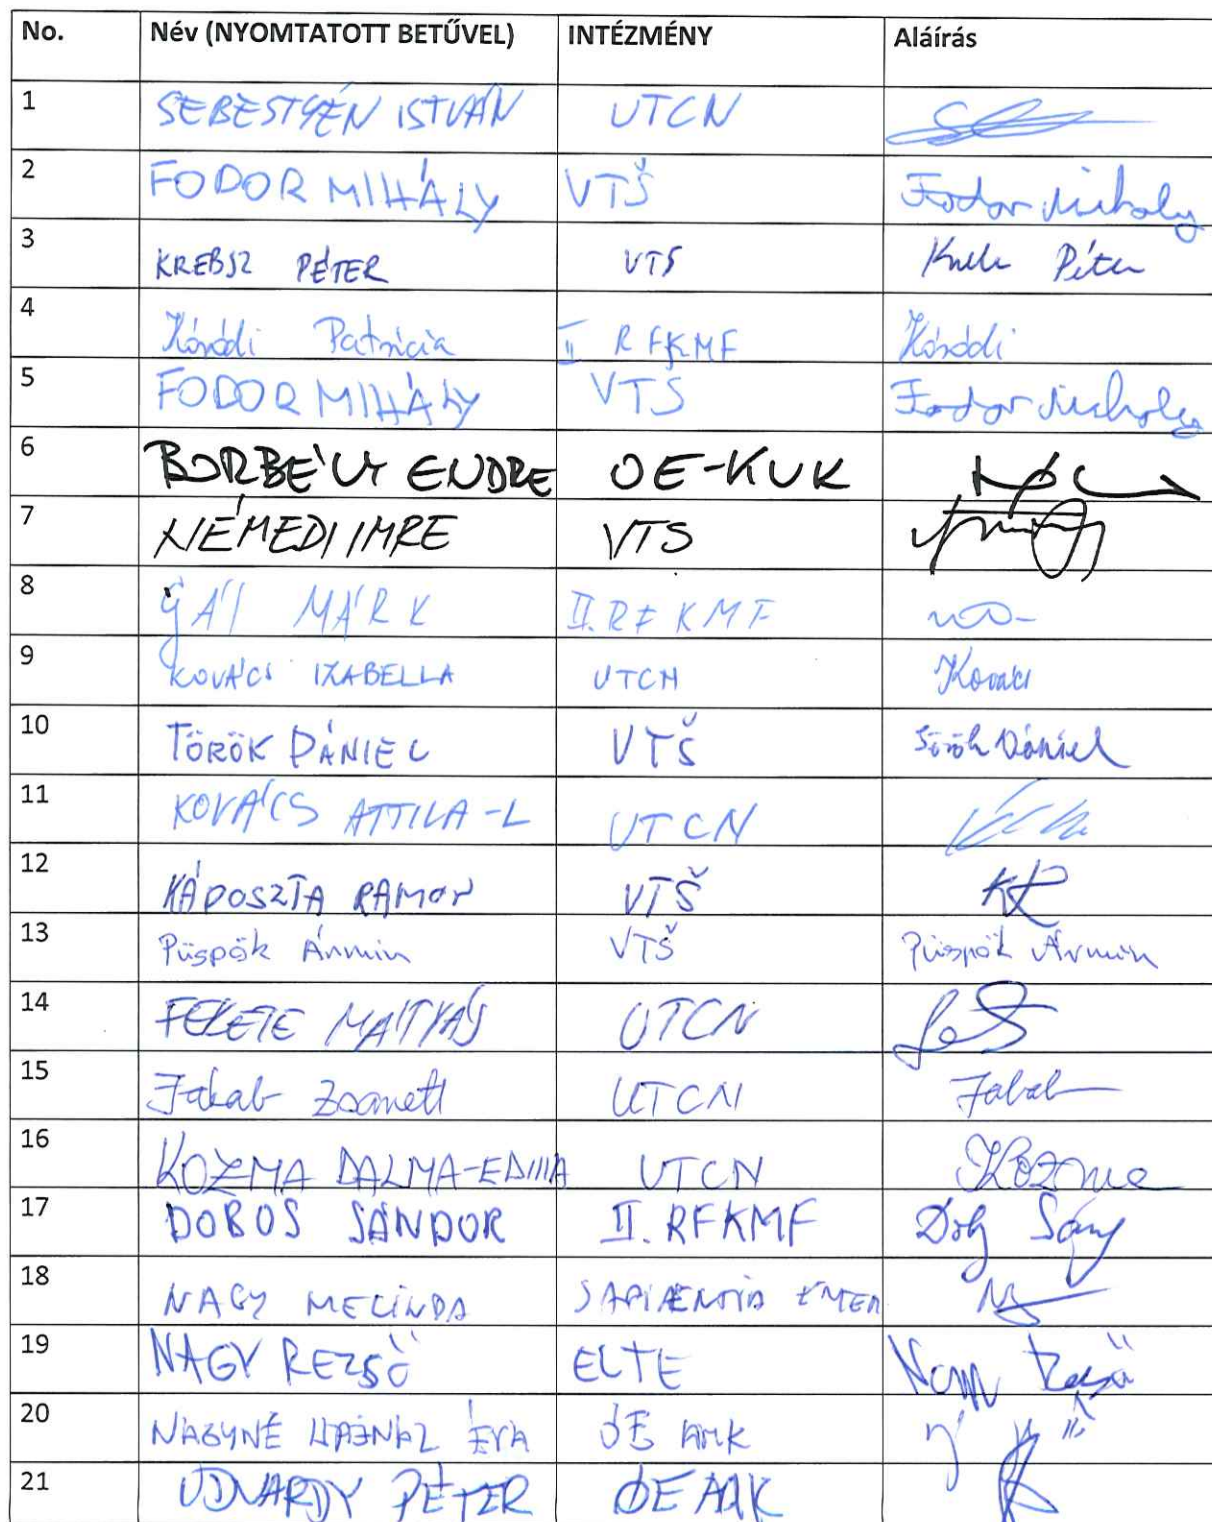 No. Név (NYOMTATOTT BETŰVEL) INTÉZMÉNY Aláírás
1 SEBESTYÉN ISTVÁN UTCN
2 FODOR MIHÁLY VTŠ Fodor Mihaly
3 KREBSZ PÉTER VTS Péter
4 Kóródi Patricia II RFKMF Kóródi
5 FODOR MIHÁLY VTS Fodor Mihaly
6 BORBÉLY ENDRE OE-KVK
7 NÉMEDI IMRE VTS
8 GÁL MÁRK II.RFKMF
9 KOVÁCS IZABELLA UTCN Kovács
10 TÖRÖK DÁNIEL VTŠ Török Dániel
11 KOVÁCS ATTILA-L UTCN
12 KÁPOSZTA RAMON VTŠ KR
13 Püspök Ármin VTŠ Püspök Ármin
14 FEKETE MÁTYÁS UTCN
15 Jakab Zsanett UTCN Jakab
16 KOZMA DALMA-EDINA UTCN Kozma
17 DOBOS SÁNDOR II. RFKMF
18 NAGY MELINDA SAPIENTIA EMTE
19 NAGY REZSŐ ELTE Rezső
20 NAGYNÉ HAJNAL ÉVA ÓE AMK
21 UDVARDY PÉTER OE AMK